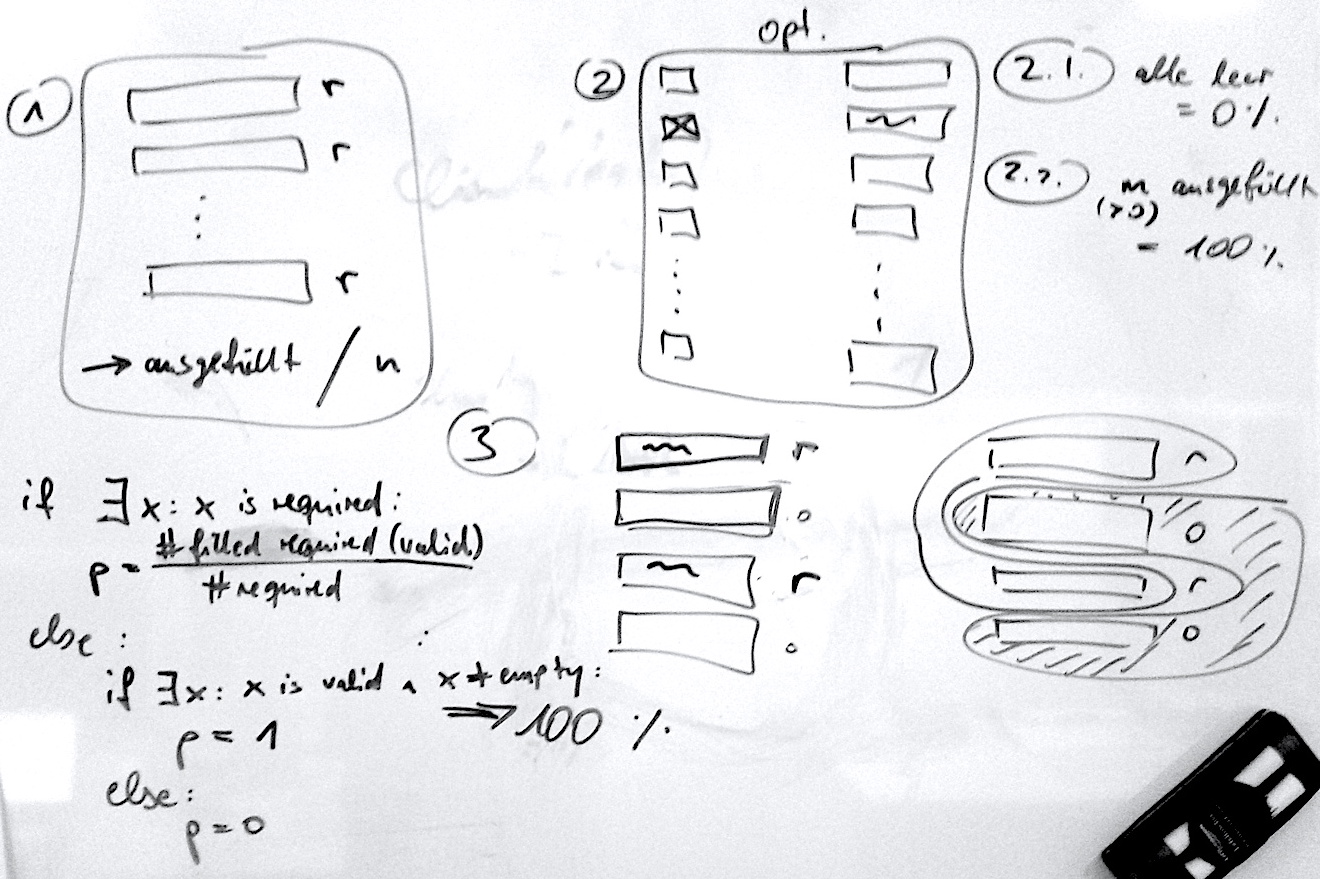 1
r
r
⋮
r
→ ausgefüllt / n
2
opt.
2.1. alle leer
= 0%
2.2. m ausgefüllt
(>0)
= 100%
3
r
o
r
o
r
o
r
o
if ∃x: x is required:
p = # filled required (valid) / # required
else:
if ∃x: x is valid ∧ x ≠ empty:
p = 1
⇒ 100 %
else:
p = 0